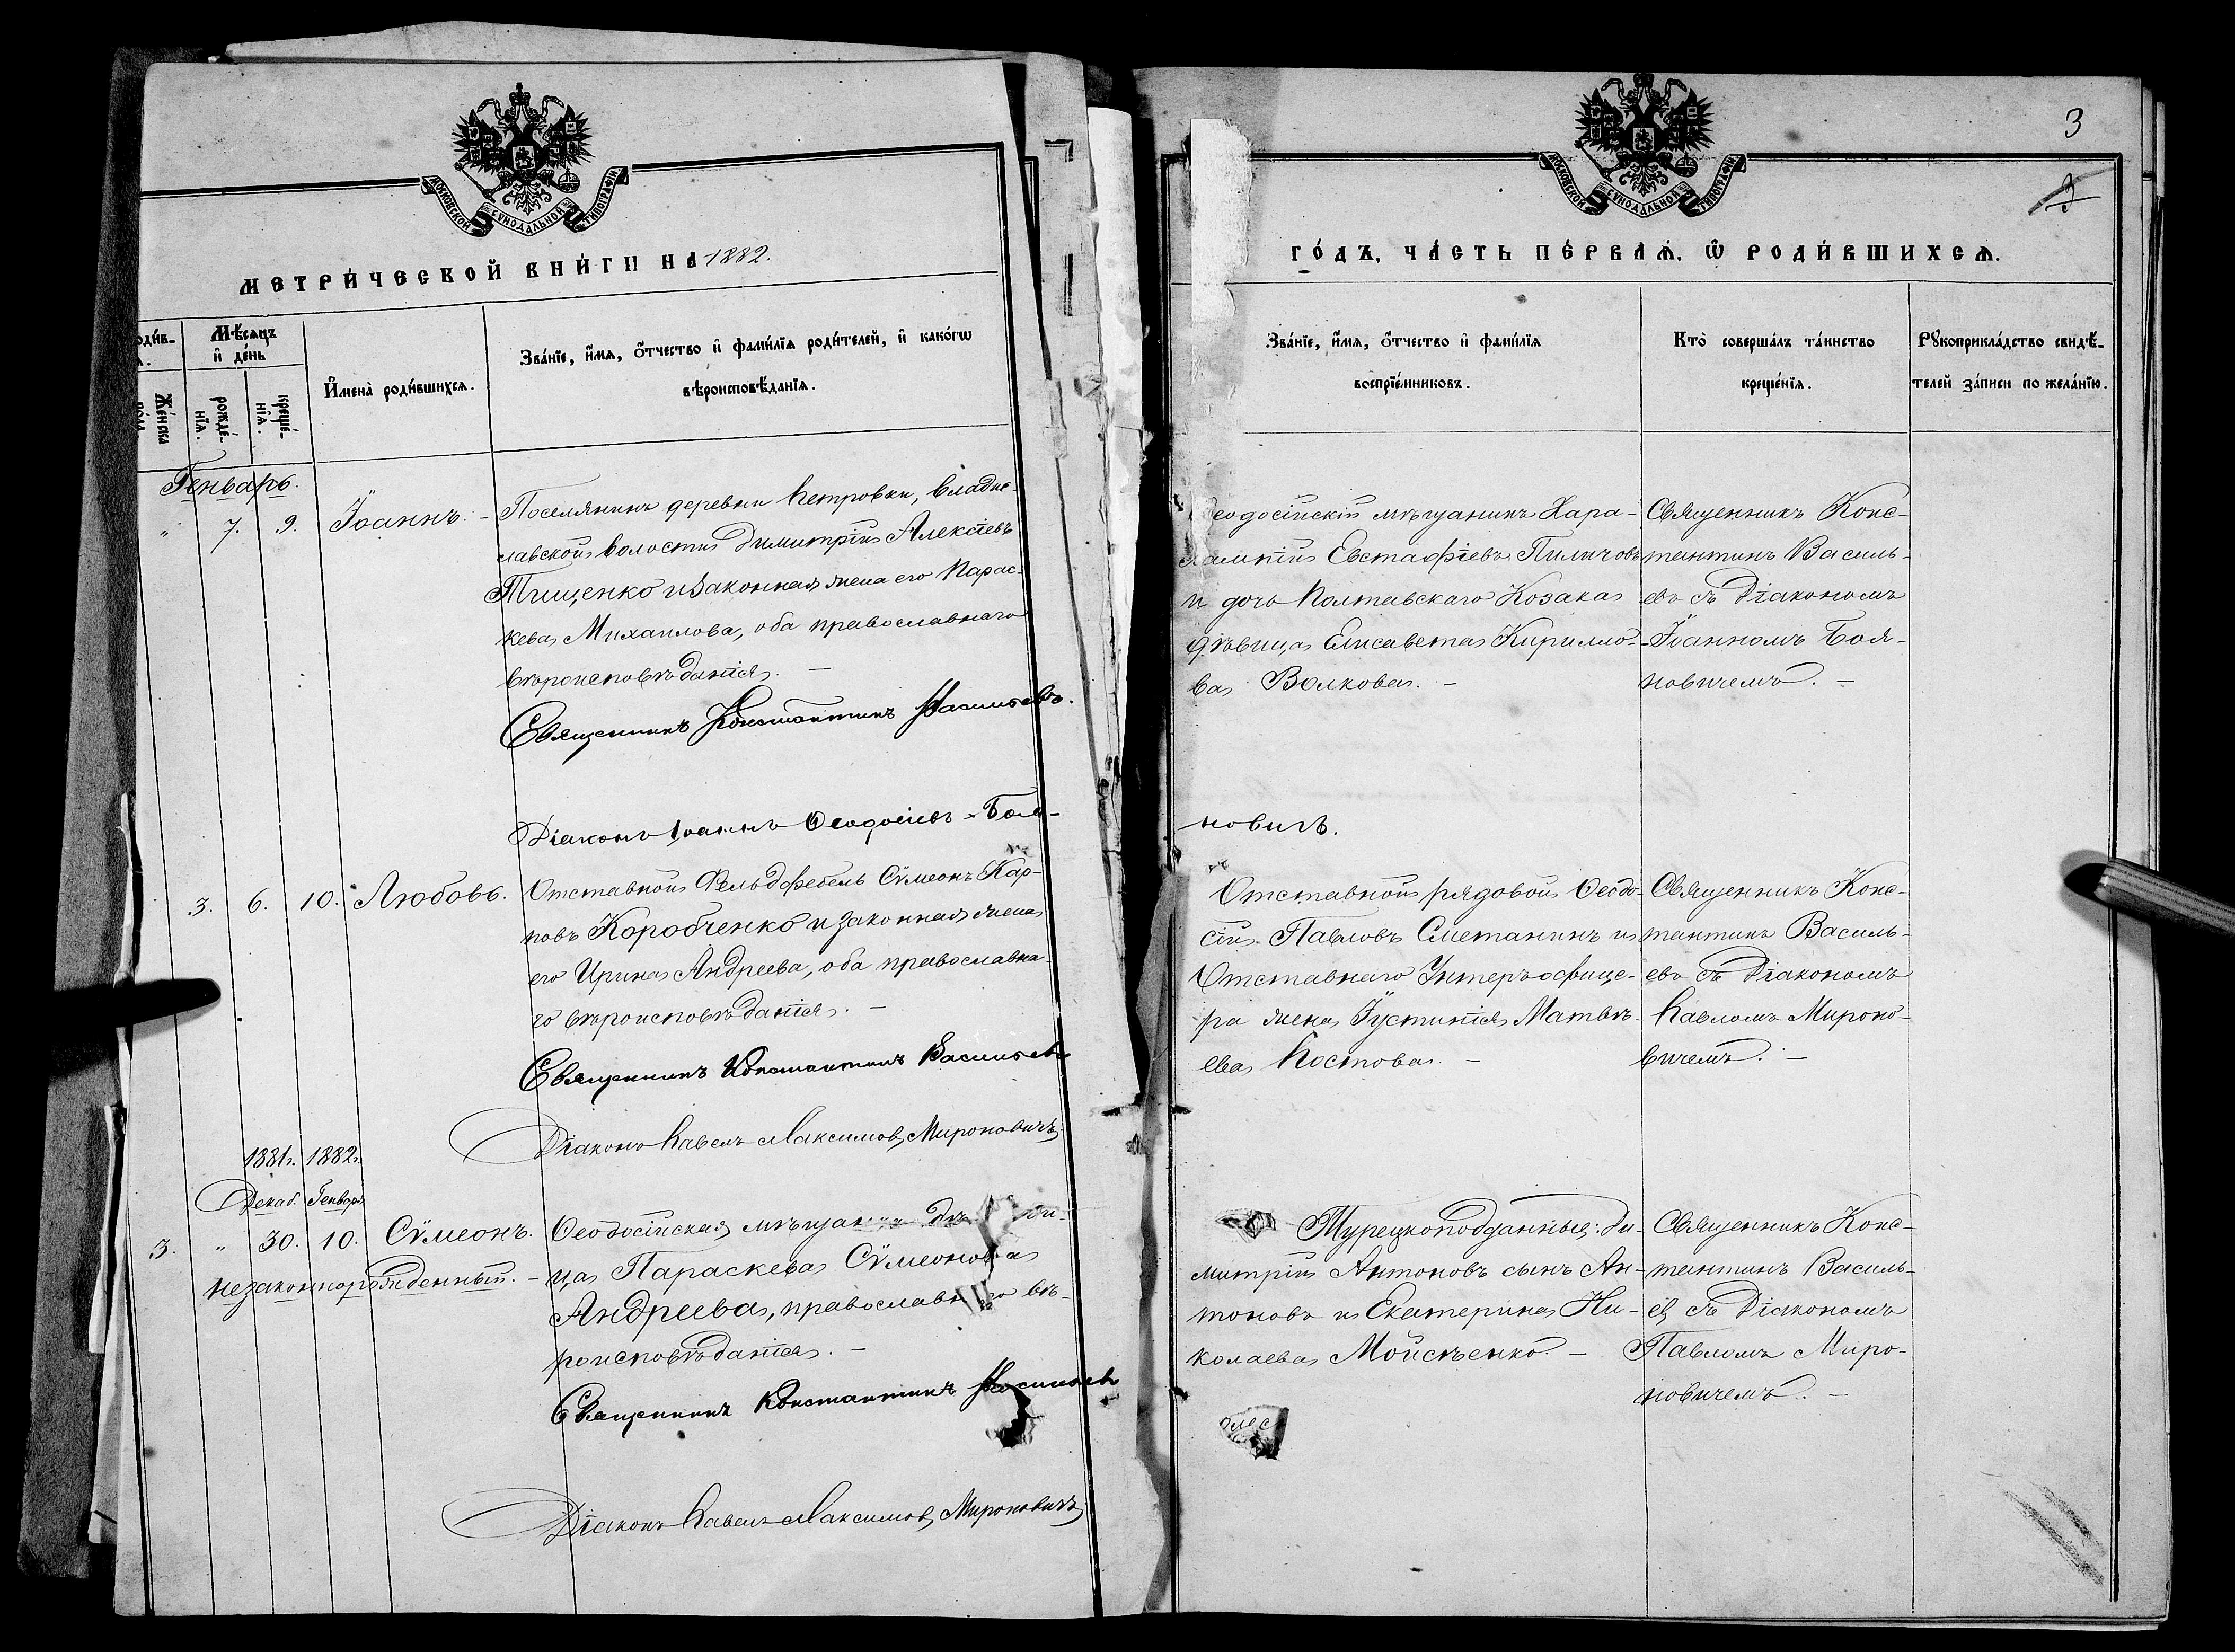 МОСКОВСКОЙ СѴНОДАЛЬНОЙ ТИПОГРАФІИ
МЕТРИ́ЧЕСКОЙ КНИ́ГИ НА 1882.
Мѣсяцъ и день
рожде́нїѧ.
креще́нїѧ.
Же́нска
Имена̀ роди́вшихсѧ.
Зва́нїе, и́мѧ, ѻ́тчество и фами́лїѧ роди́телей, и како́гѡ
вѣроисповѣ́данїѧ.
Генварь.
" 7. 9. Іоаннъ. - Поселянинъ деревни Петровки, Владис-
лавской волости Димитрій Алексѣевъ
Тищенко и законная жена его Парас-
кева Михаилова, оба православнаго
вѣроисповѣданія. -
Священникъ Константинъ Васильевъ.
Діаконъ Іоаннъ Ѳеодосіевъ Боя-
3. 6. 10. Любовь. Отставной Фельдфебель Сѵмеонъ Кар-
повъ Коробченко и законная жена
его Ирина Андреева, оба православна-
го вѣроисповѣданія. -
Священникъ Константинъ Васильевъ
Діаконъ Павелъ Максимовъ Мироновичъ
1881г. 1882г.
Декаб. Генварь
3. " 30. 10. Сѵмеонъ. Ѳеодосійская мѣщанка
незаконнорожденный. - ца Параскева Сѵмеонова
Андреева, православнаго вѣ-
роисповѣданія. -
Священникъ Константинъ Васильевъ
Діаконъ Павелъ Максимовъ Мироновичъ
3
МОСКОВСКОЙ СѴНОДАЛЬНОЙ ТИПОГРАФІИ
ГО́ДЪ, ЧА́СТЬ ПЕ́РВАѦ, Ѿ РОДИ́ВШИХСѦ.
Зва́нїе, и́мѧ, ѻ́тчество и фами́лїѧ
воспрїе́мниковъ.
Кто̀ соверша́лъ та́инство
креще́нїѧ.
Рꙋкоприкла́дство свидѣ́-
телей за́писи по жела́нїю.
еодосійскій мѣщанинъ Хара-
лампій Евстафіевъ Пиличовъ
и дочь Полтавскаго Козака
дѣвица Елисавета Кирилло-
ва Волкова. -
Священникъ Конс-
тантинъ Василь-
евъ съ Діакономъ
Іоанномъ Боя-
новичемъ. -
новичъ.
Отставной рядовой Ѳеодо-
сій Павловъ Сметанинъ и
Отставнаго Унтеръ-офице-
ра жена Іустинія Матвѣ-
ева Костова. -
Священникъ Конс-
тантинъ Василь-
евъ съ Діакономъ
Павломъ Мироно-
вичемъ. -
Турецкоподданные: Ди-
митрій Антоновъ сынъ Ан-
тоновъ и Екатерина Ни-
колаева Мойсѣенко. -
Священникъ Конс-
тантинъ Василь-
евъ съ Діакономъ
Павломъ Миро-
новичемъ. -